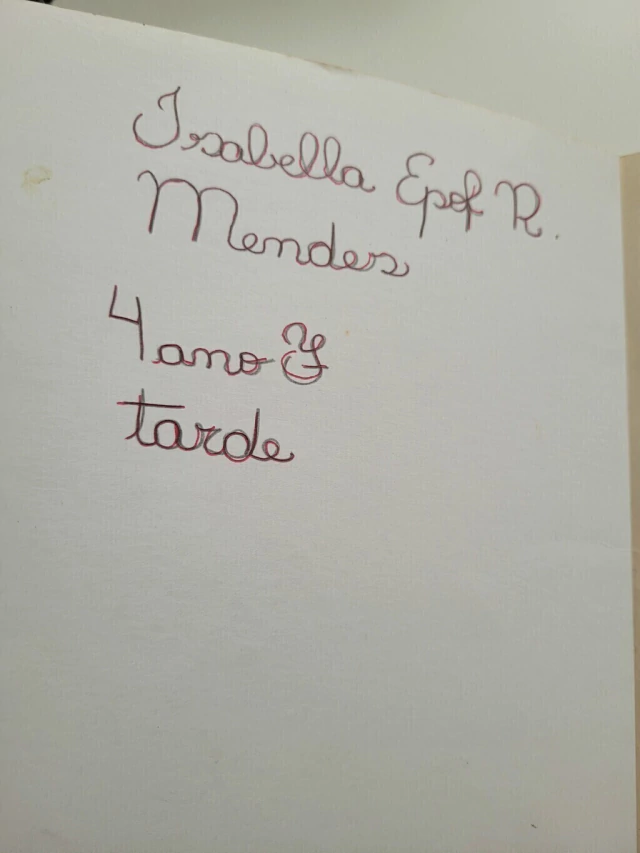 Isabella Epof R.
Mendes
4 ano
tarde